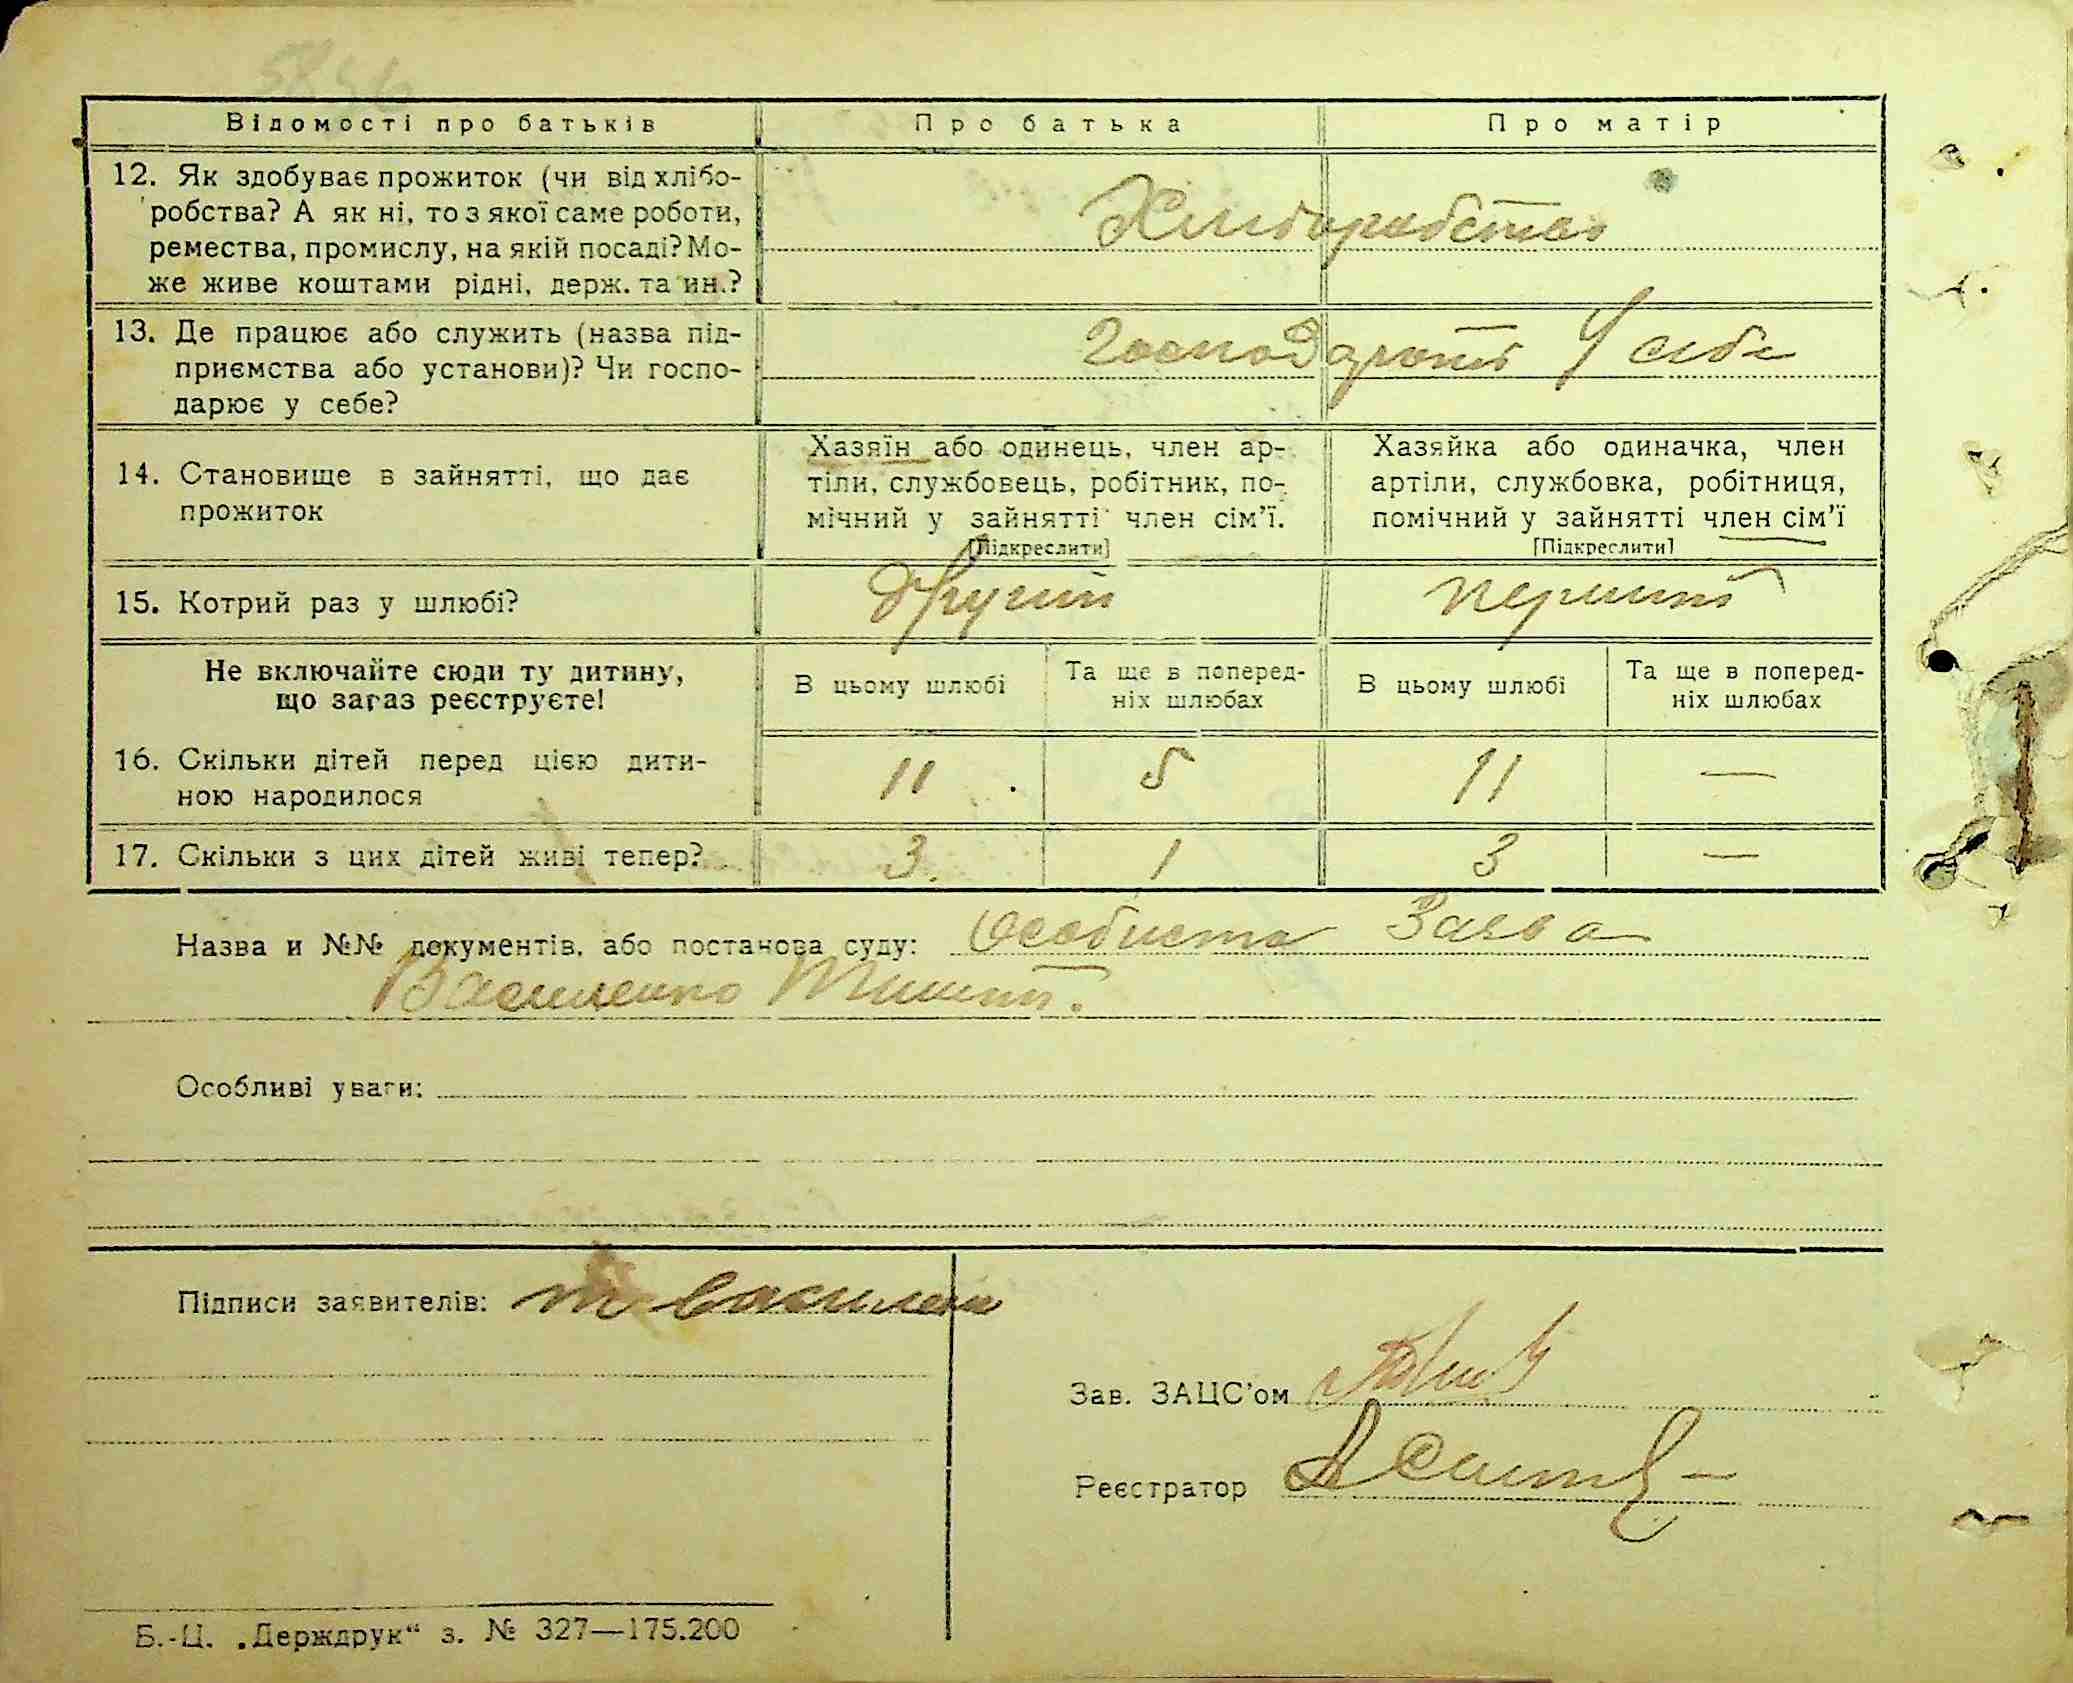 5856
Відомості про батьків
Про батька
Про матір
12. Як здобуває прожиток (чи від хлібо-
робства? А як ні, то з якої саме роботи,
ремества, промислу, на якій посаді? Мо-
же живе коштами рідні, держ. та ин.?
Хліборобство
13. Де працює або служить (назва під-
приємства або установи)? Чи госпо-
дарює у себе?
Господарють У себе
14. Становище в зайнятті, що дає
прожиток
Хазяїн або одинець, член ар-
тіли, службовець, робітник, по-
мічний у зайнятті член сім’ї.
[Підкреслити]
Хазяйка або одиначка, член
артіли, службовка, робітниця,
помічний у зайнятті член сім’ї
[Підкреслити]
15. Котрий раз у шлюбі?
другий
перший
Не включайте сюди ту дитину,
що зараз реєструєте!
В цьому шлюбі
Та ще в поперед-
ніх шлюбах
В цьому шлюбі
Та ще в поперед-
ніх шлюбах
16. Скільки дітей перед цією дити-
ною народилося
11
5
11
—
17. Скільки з цих дітей живі тепер?
3.
1
3
—
Назва и №№ документів, або постанова суду: Особиста Заява
Василенко
Особливі уваги:
Підписи заявителів: т василен
Зав. ЗАЦС’ом
Реєстратор
Б.-Ц. „Держдрук“ з. № 327—175.200